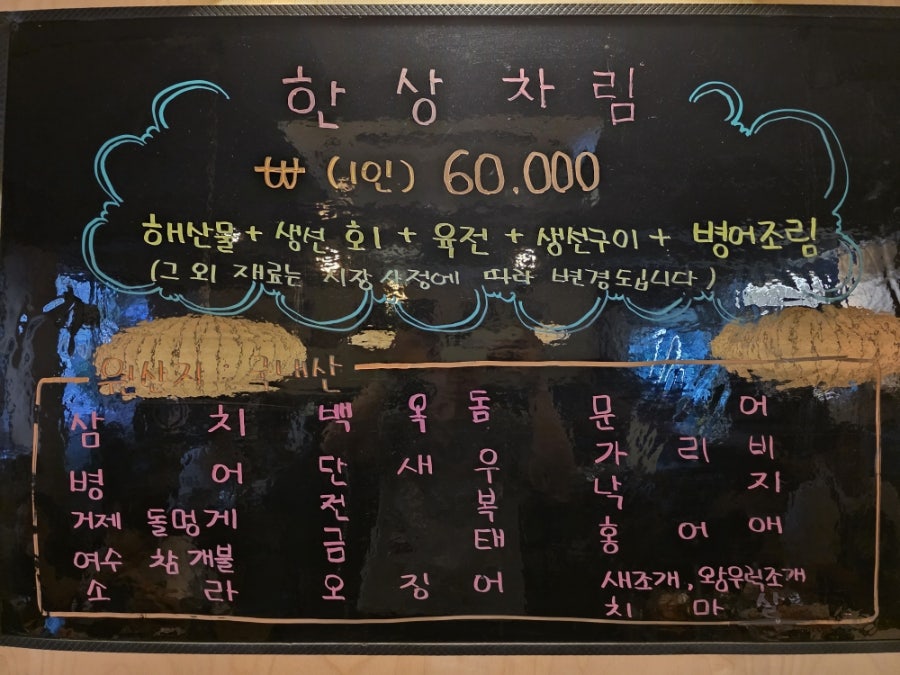 한 상 차 림
₩ (1인) 60.000
해산물 + 생선 회 + 육전 + 생선구이 + 병어조림
(그 외 재료는 시장사정에 따라 변경도입니다)
원산지 : 국내산
삼 치
병 어
거제 돌멍게
여수 참개불
소 라
백 옥 돔
단 새 우
전 복
금 태
오 징 어
문 어
가 리 비
낙 지
홍 어 애
새조개, 왕우럭조개
치 마 살